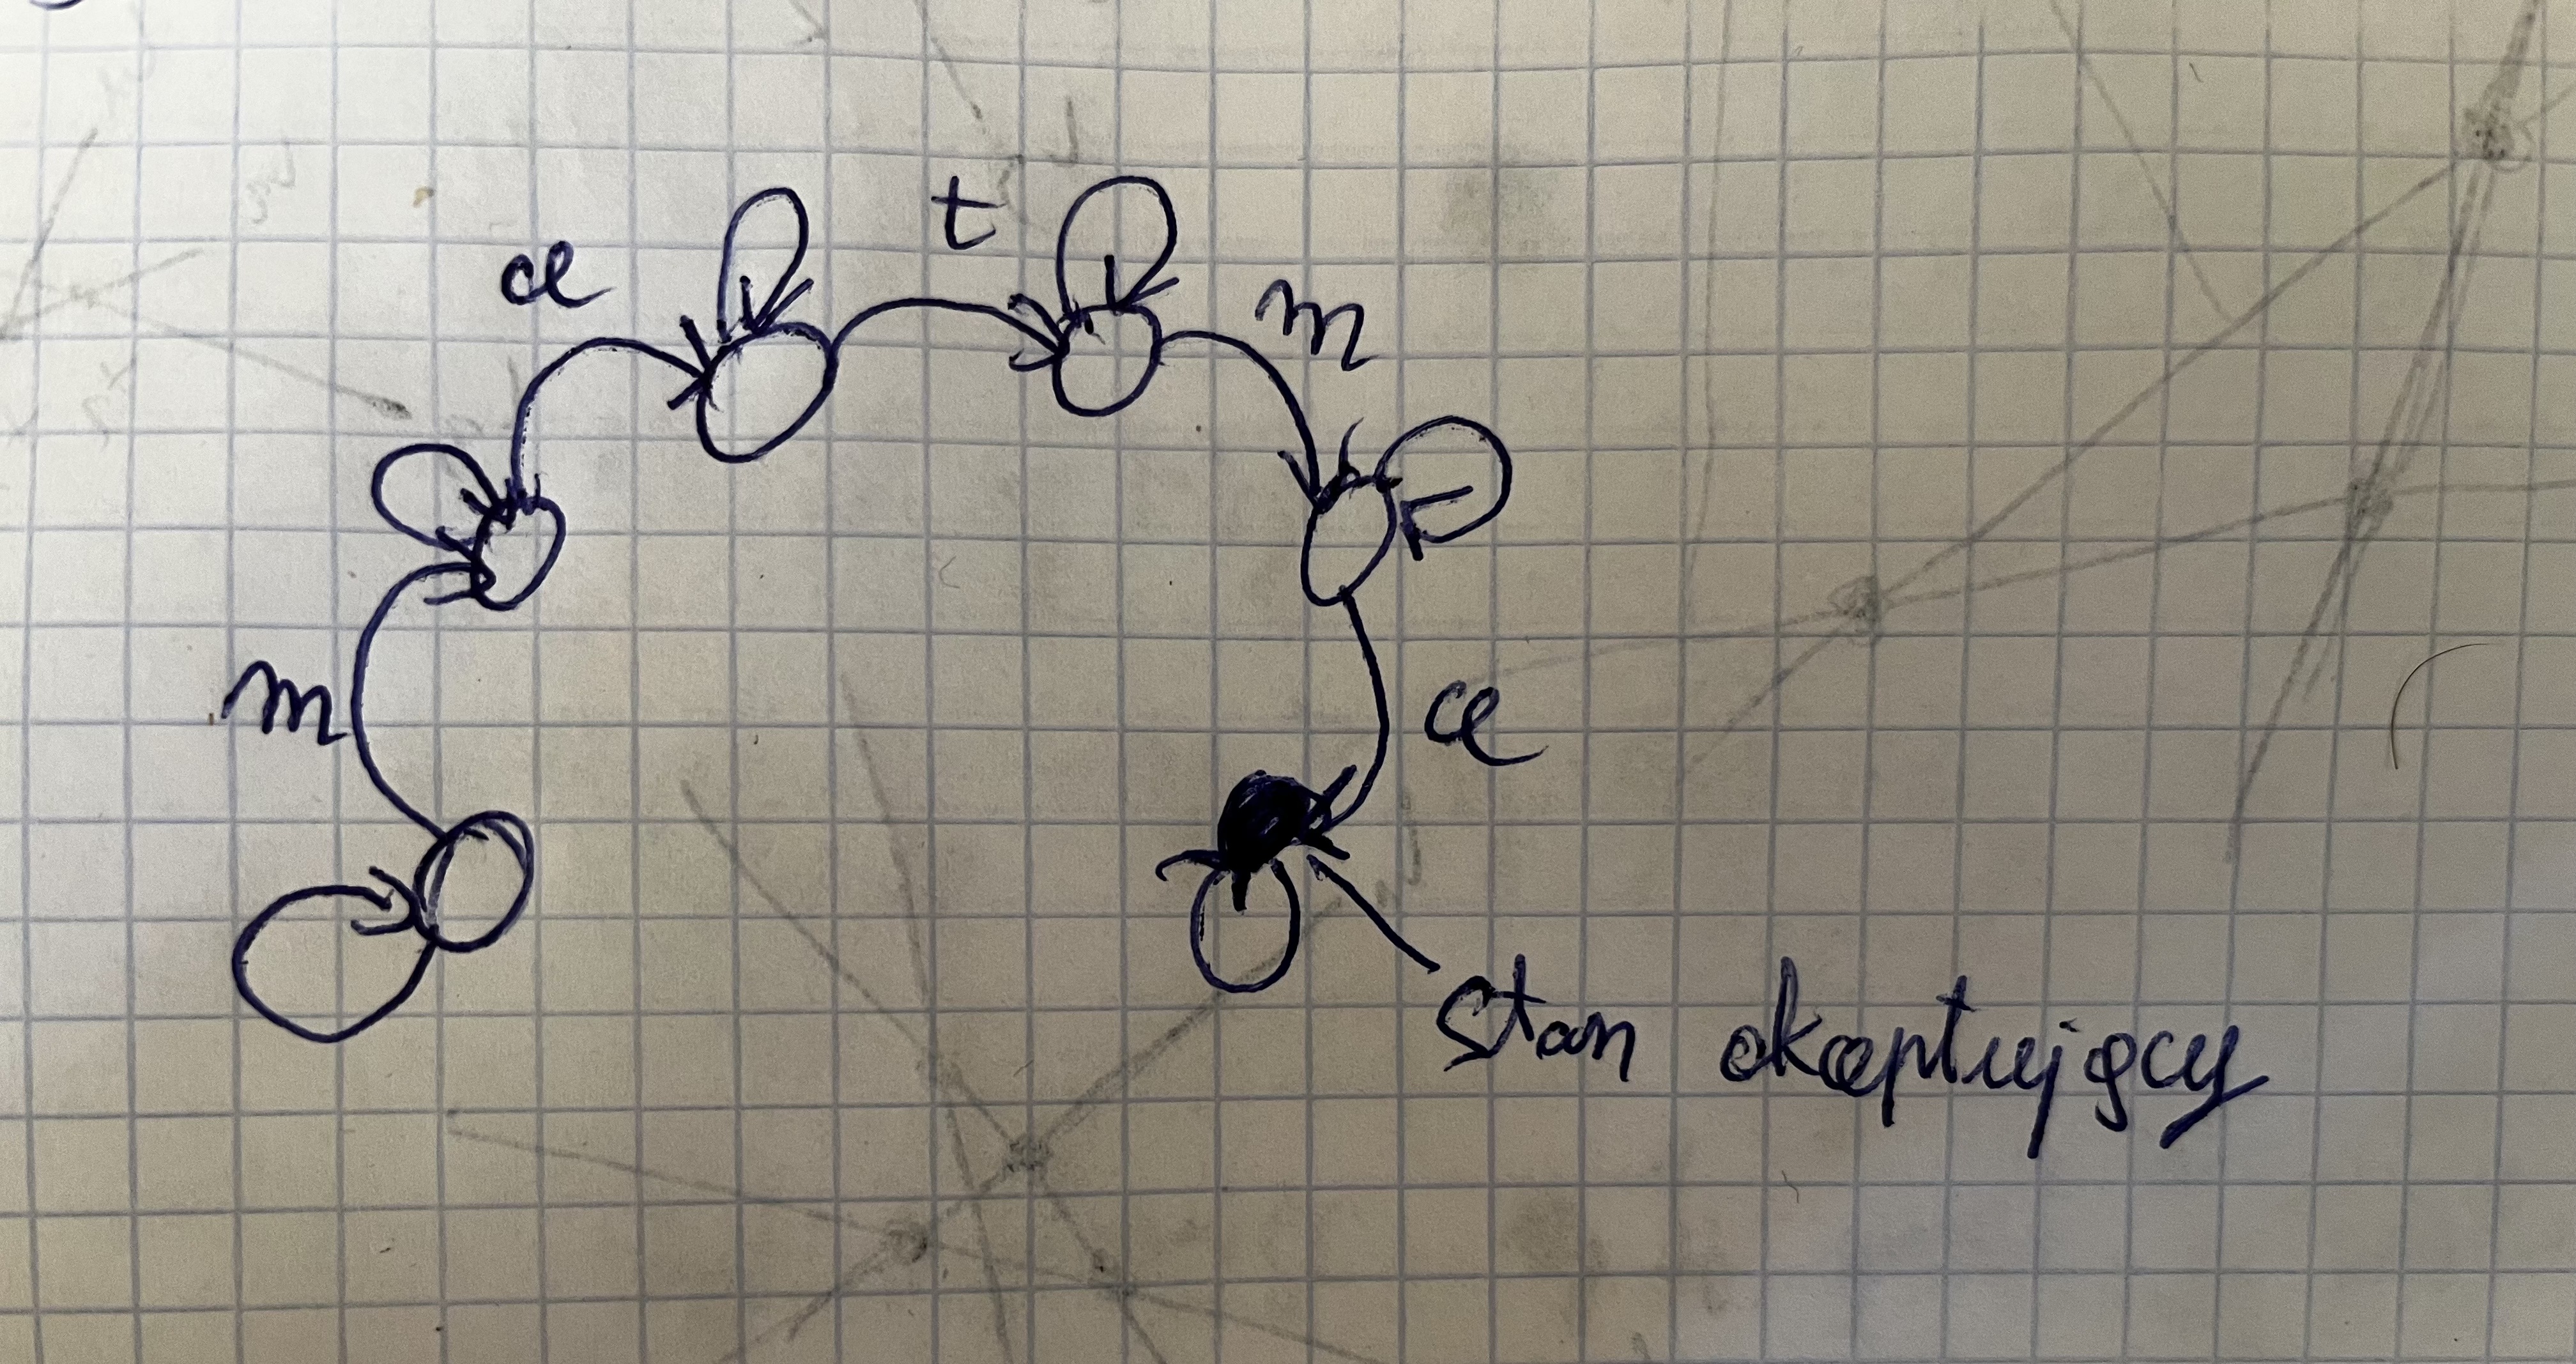 m
a
t
m
a
Stan akceptujący